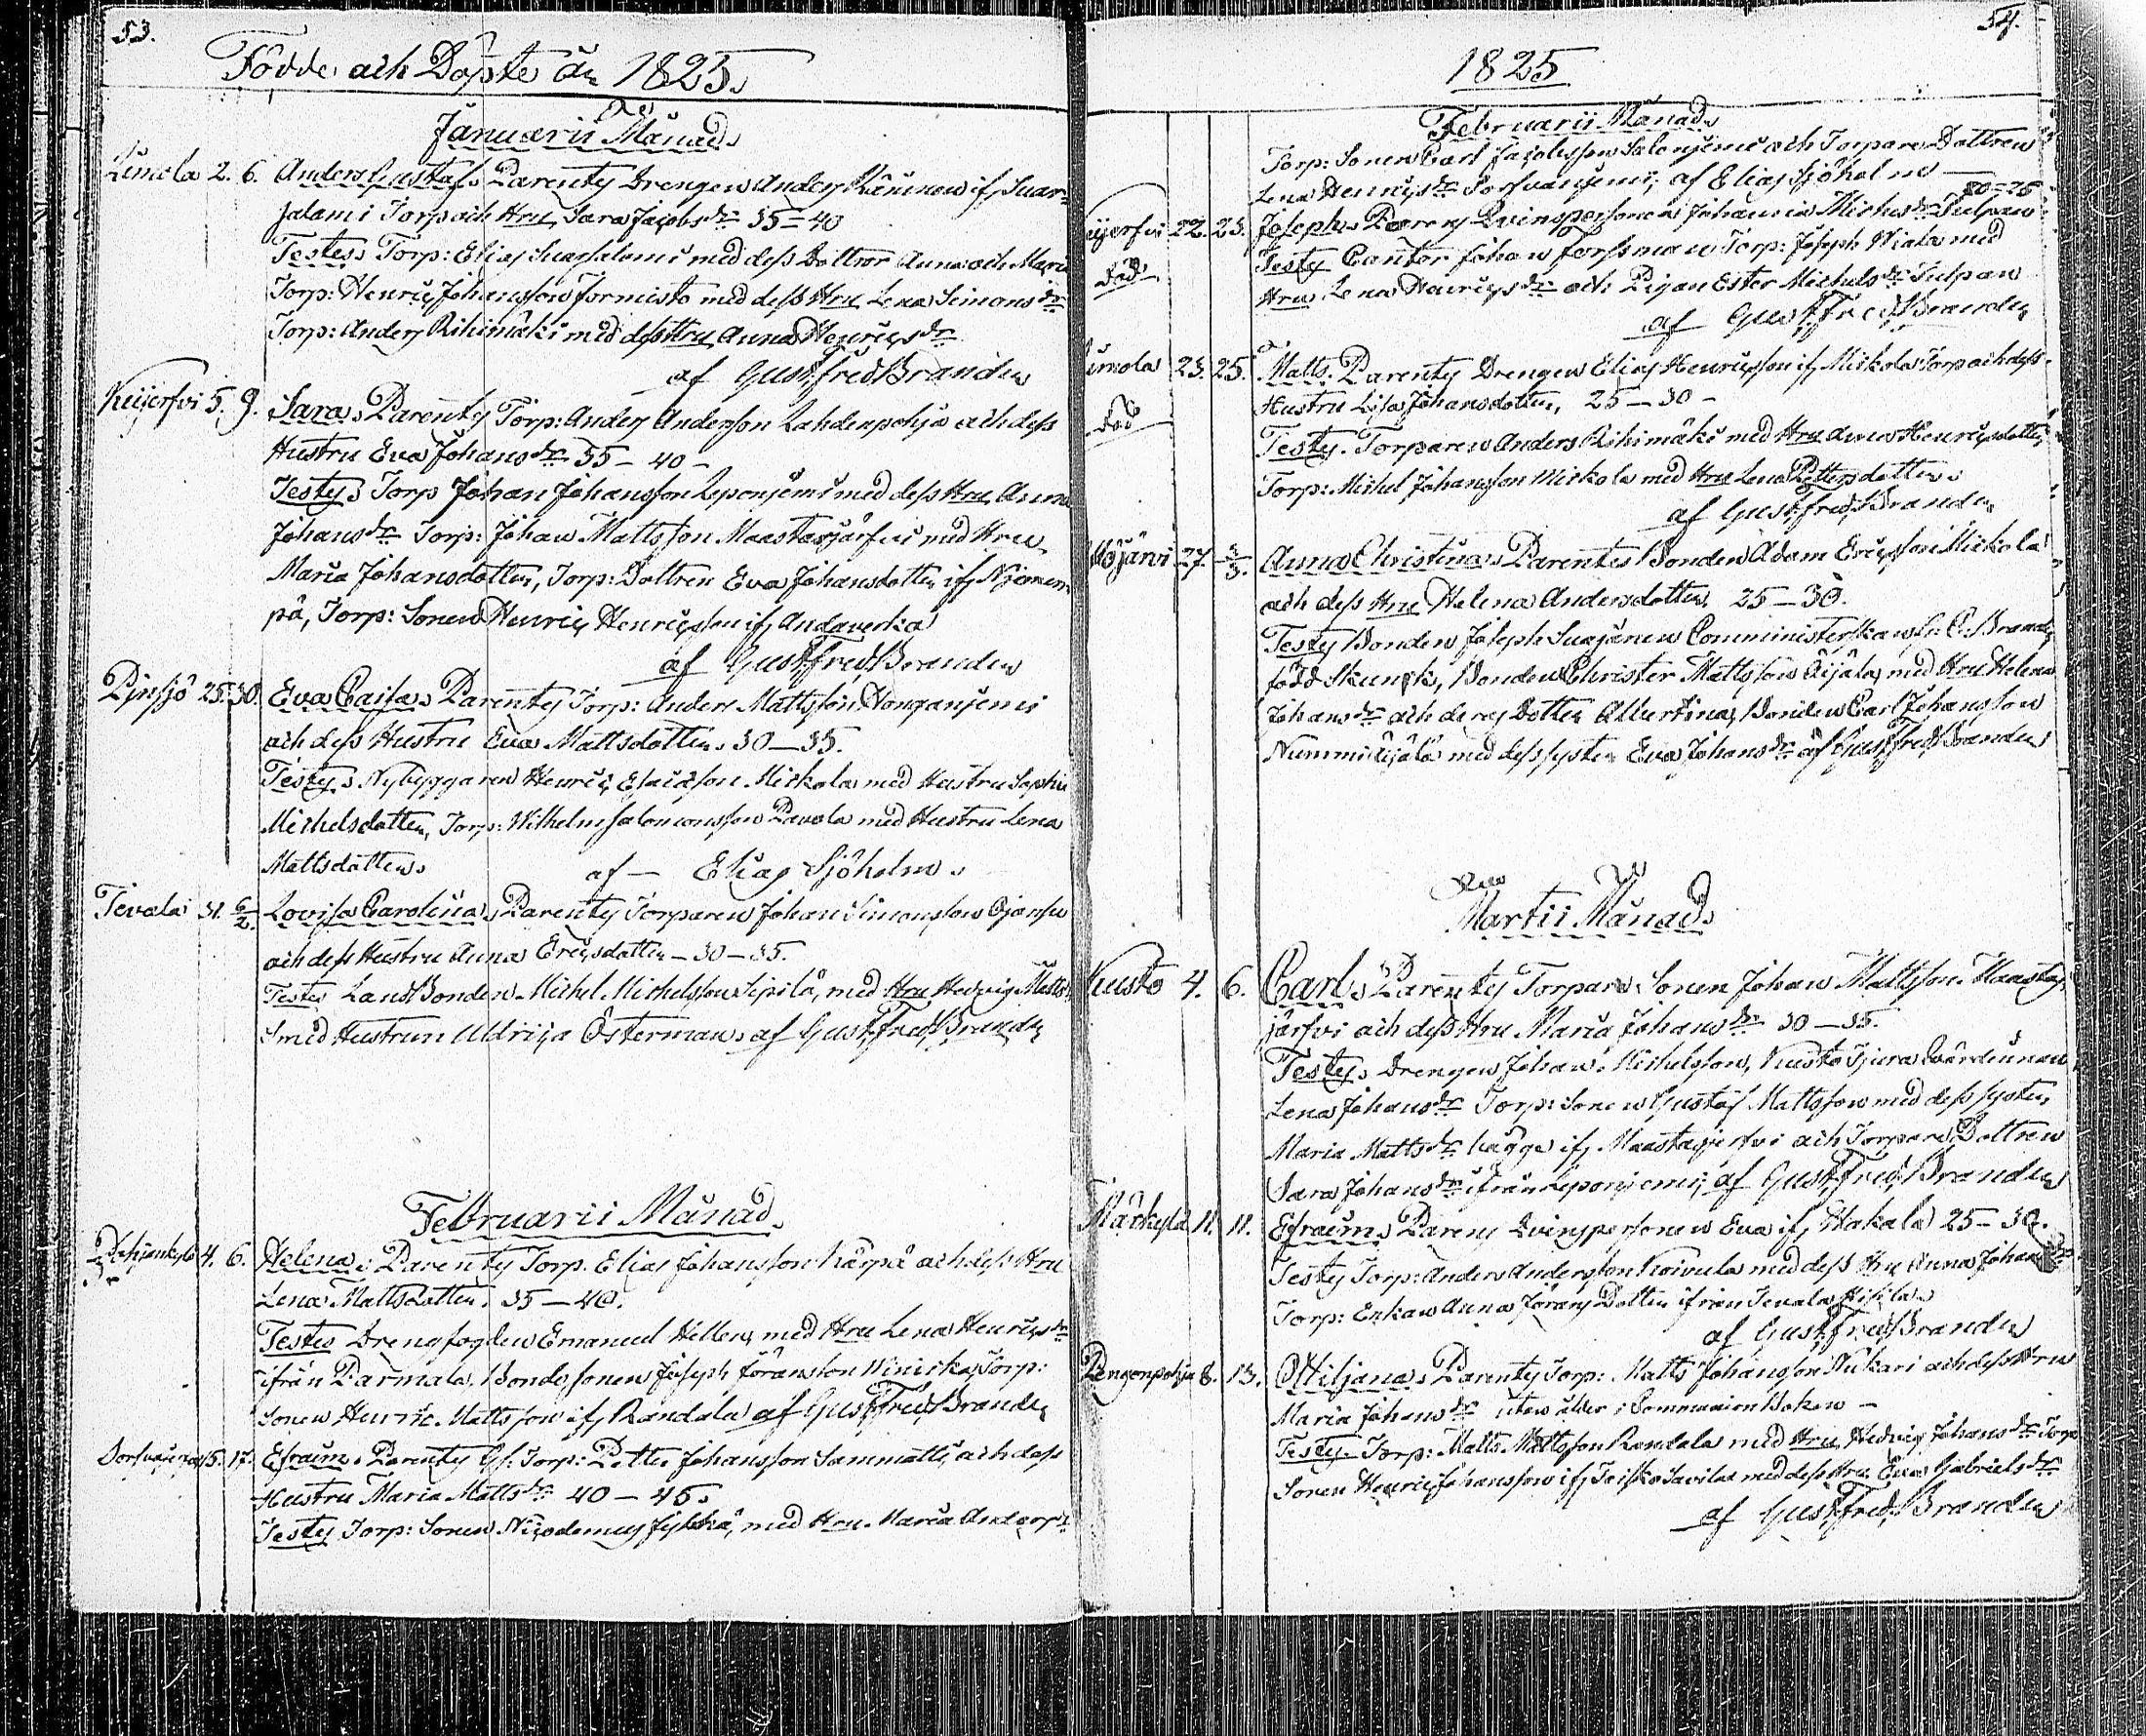 53.
Födde och Döpte år 1825.
Januarii Månad.
Limola 2. 6. Anders Gustaf. Parentes Drengen Anders if Suar-
jalami Torp och Hru Sara Jacobsdr 35–40
Testes Torp: Elias Suarjalami med dess Dottror Anna och Maria
Torp: Henric Johansson Tormisto med dess Hru Lena Simonsdr
Torp: Anders Rihimäki med dess Hru Anna Henricsdr
af Gust. Fred. Brander
Kijerfvi 5. 9. Sara. Parentes Torp: Anders Andersson Lahdenpohja och dess
Hustru Eva Johansdr 35–40–
Testes Torp Johan Johansson Leponjemi med dess Hru Anna
Johansdr Torp: Johan Mattsson Maastarjärfvi med Hru
Maria Johansdotter, Torp: Dottren Eva Johansdotter if
på, Torp: Sonen Henric Henricsson if
af Gust. Fred. Brander
Pijnsjö 25. 30. Eva Caisa. Parentes Torp: Anders Mattsson Honganjemi
och dess Hustru Eva Mattsdotter. 30–35.
Testes Nybyggaren Henric Esaiasson Mickola med Hustru Sophia
Michelsdotter, Torp: Wilhelm Salomonsson Pavola med Hustru Lena
Mattsdotter. af – Elias Sjöholm.
Tevala 31. 6/2. Lovisa Carolina. Parentes Torparen Johan Simonsson Ojansu
och dess Hustru Anna Ericsdotter – 30–35.
Testes LandBonden Michel Michelsson Sipilä, med Hru Hedvig Matts
Smed Hustrun Ulrica Österman. af Gust. Fred. Brander
Februarii Månad.
4. 6. Helena. Parentes Torp. Elias Johansson Kärpä och dess Hru
Lena Mattsdotter. 35–40.
Testes Drengfogden Emanuel Hellen, med Hru Lena Henricsdr
ifrån Parmala, Bondesonen Joseph Jöransson Torp:
Sonen Henric Mattsson if Randala af Gust. Fred. Brander
15. 17. Efraim. Parentes Gf. Torp: Petter Johansson Sammatti och dess
Hustru Maria Mattsdr 40–45.
Testes Torp: Sonen Nicodemus med Hru Maria Anders
54.
1825
Februarii Månad.
Torp: Sonen Carl Jacobsson Salonjemi och Torpare Dottren
Lena Henricsdr af Elias Sjöholm
20–25
ijerfvi 22. 23. Joseph. Parens Qvinspersonen Johanna Michelsdr Tulpan
död Testes Cantor Johan Forssman Torp: Joseph Wiala med
Hru Lena Henricsdr och Pigan Ester Michelsdr Tulpan
af Gust. Fred. Brander
imola 23. 25. Matts. Parentes Drengen Elias Henricsson if Mickola Torp och dess
död Hustru Lisa Johansdotter, 25–30–
Testes. Torparen Anders Rihimäki med Hru Anna Henricsdotter
Torp: Michel Johansson Mickola med Hru Lena Pettersdotter.
af Gust. Fred. Brander
27. Anna Christina. Parentes Bonden Adam Ericsson Mickola
och dess Hru Helena Andersdotter, 25–30.
Testes Bonden Joseph Comministerskan Brander
född Skunck, Bonden Christer Mattsson Äijälä, med Hru Helena
Johansdr och deras Dotter Albertina, Bonden Carl Johansson
Nummi Äijälä med dess syster Eva Johansdr af Gust. Fred. Brander
Martii Månad.
Kusto 4. 6. Carl. Parentes Torpare Sonen Johan Mattsson Maastar-
järfvi och dess Hru Maria Johansdr 30–35.
Testes. Drengen Johan Michelsson,
Lena Johansdr Torp: Sonen Gustaf Mattsson med dess syster
Maria Mattsdr bägge if Maastarjerfvi och Torpare Dottren
Sara Johansdr ifrån Leponjemi; af Gust. Fred. Brander
11. 11. Efraim. Parens Qvinspersonen Eva if Hakala 25–30.
Testes Torp: Anders Andersson Koivula med dess Hru Anna Johansdr
Torp: Enkan Anna Görans Dotter ifrån Tevala
af Gust. Fred. Brander
Pengonpohja 8. 13. Ottiljana. Parentes Torp: Matts Johansson Nikari och dess Hru
Maria Johansdr utan ålder i Communion Boken –
Testes. Torp: Matts Mattsson Randala med Hru Hedvig Johansdr Torp
Sonen Henric Johansson if med dess Hru Eva Gabrielsdr
af Gust. Fred. Brander